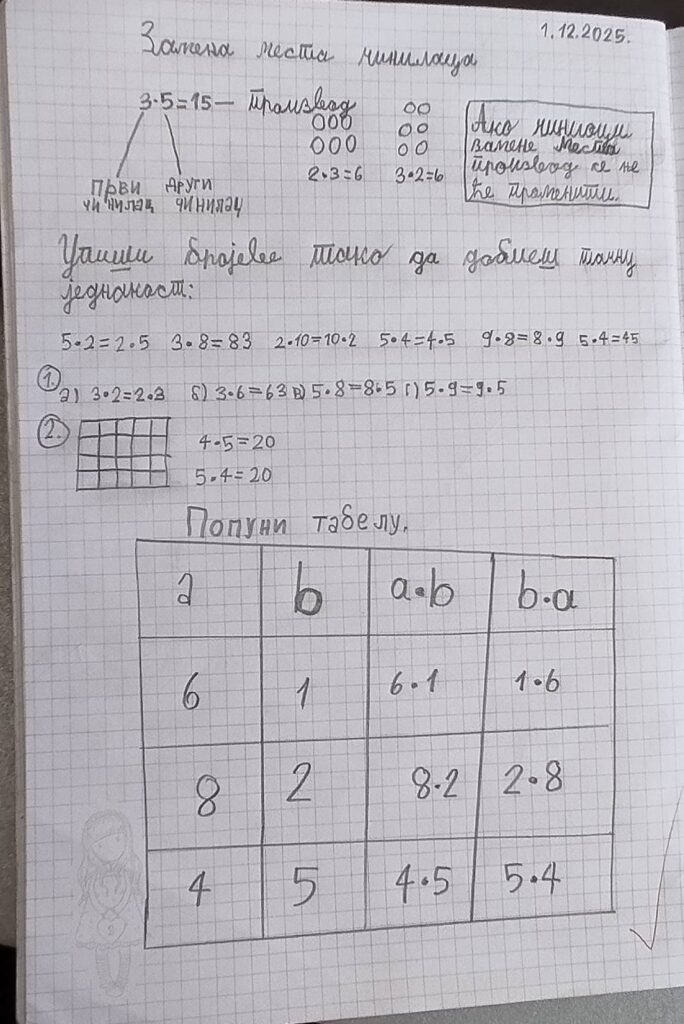 1.12.2025.
Замена места чинилаца
3·5=15— Производ
први чинилац
други чинилац
2·3=6 3·2=6
Ако чиниоци
замене места
производ се не
ће променити.
Упиши бројеве тако да добијеш тачну
једнакост:
5·2=2·5 3·8=83 2·10=10·2 5·4=4·5 9·8=8·9 5·4=45
1.
а) 3·2=2·3 б) 3·6=63 в) 5·8=8·5 г) 5·9=9·5
2.
4·5=20
5·4=20
Попуни табелу.
a b a·b b·a
6 1 6·1 1·6
8 2 8·2 2·8
4 5 4·5 5·4